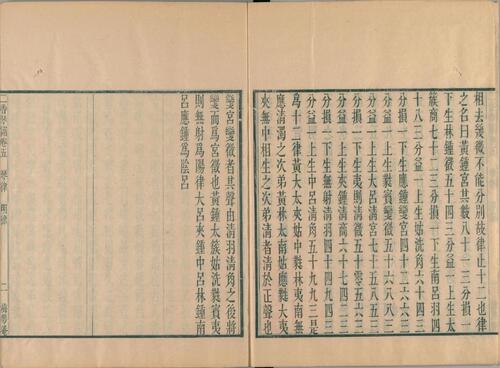 相去幾微不能分別故律止十二也律
之名曰黃鍾宮其數八十一三分損一
下生林鍾徵五十四三分益一上生太
簇商七十二三分損一下生南呂羽四
十八三分益一上生姑洗角六十四三
分損一下生應鍾變宮四十二六六三
分益一上生蕤賓變徵五十六八八三
分益一上生大呂清宮七十五八五三
分損一下生夷則清徵五十零五六三
分益一上生夾鍾清商六十七四二三
分損一下生無射清羽四十四九四三
分益一上生中呂清角五十九九三是
為十二律黃大太夾姑中蕤林夷南無
應清濁之次弟黃林太南姑應蕤大夷
夾無中相生之次弟清者清於正聲也
變宮變徵者其聲由清羽清角之後將
變而為宮徵也黃鍾太簇姑洗蕤賓夷
則無射為陽律大呂夾鍾中呂林鍾南
呂應鍾為陰呂
二香琴譜卷五 琴律
二